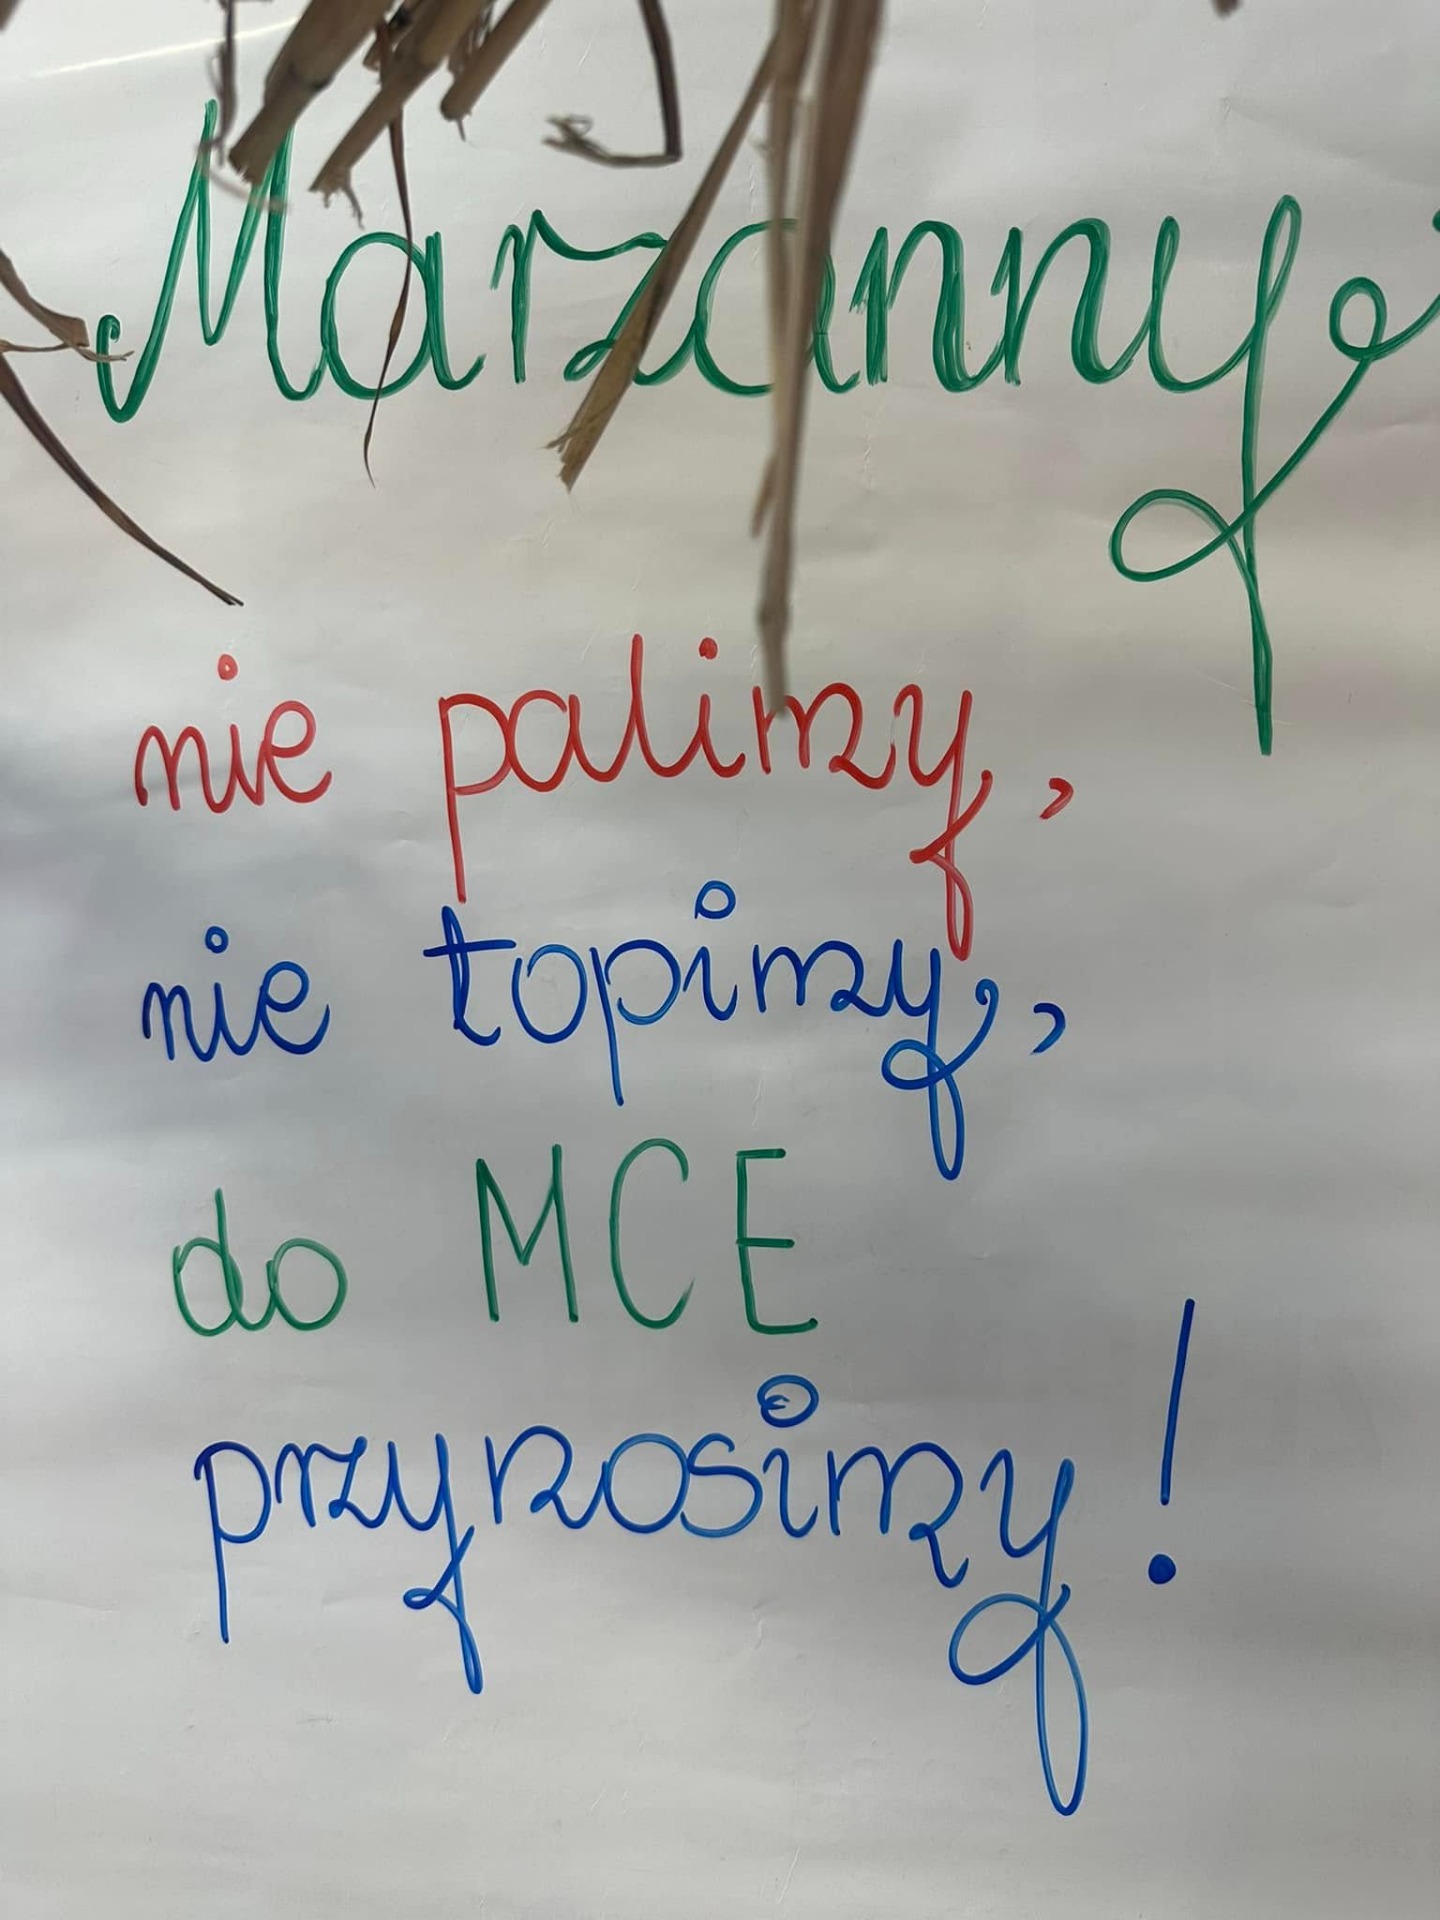 Marzanny
nie palimy,
nie topimy,
do MCE
przynosimy!